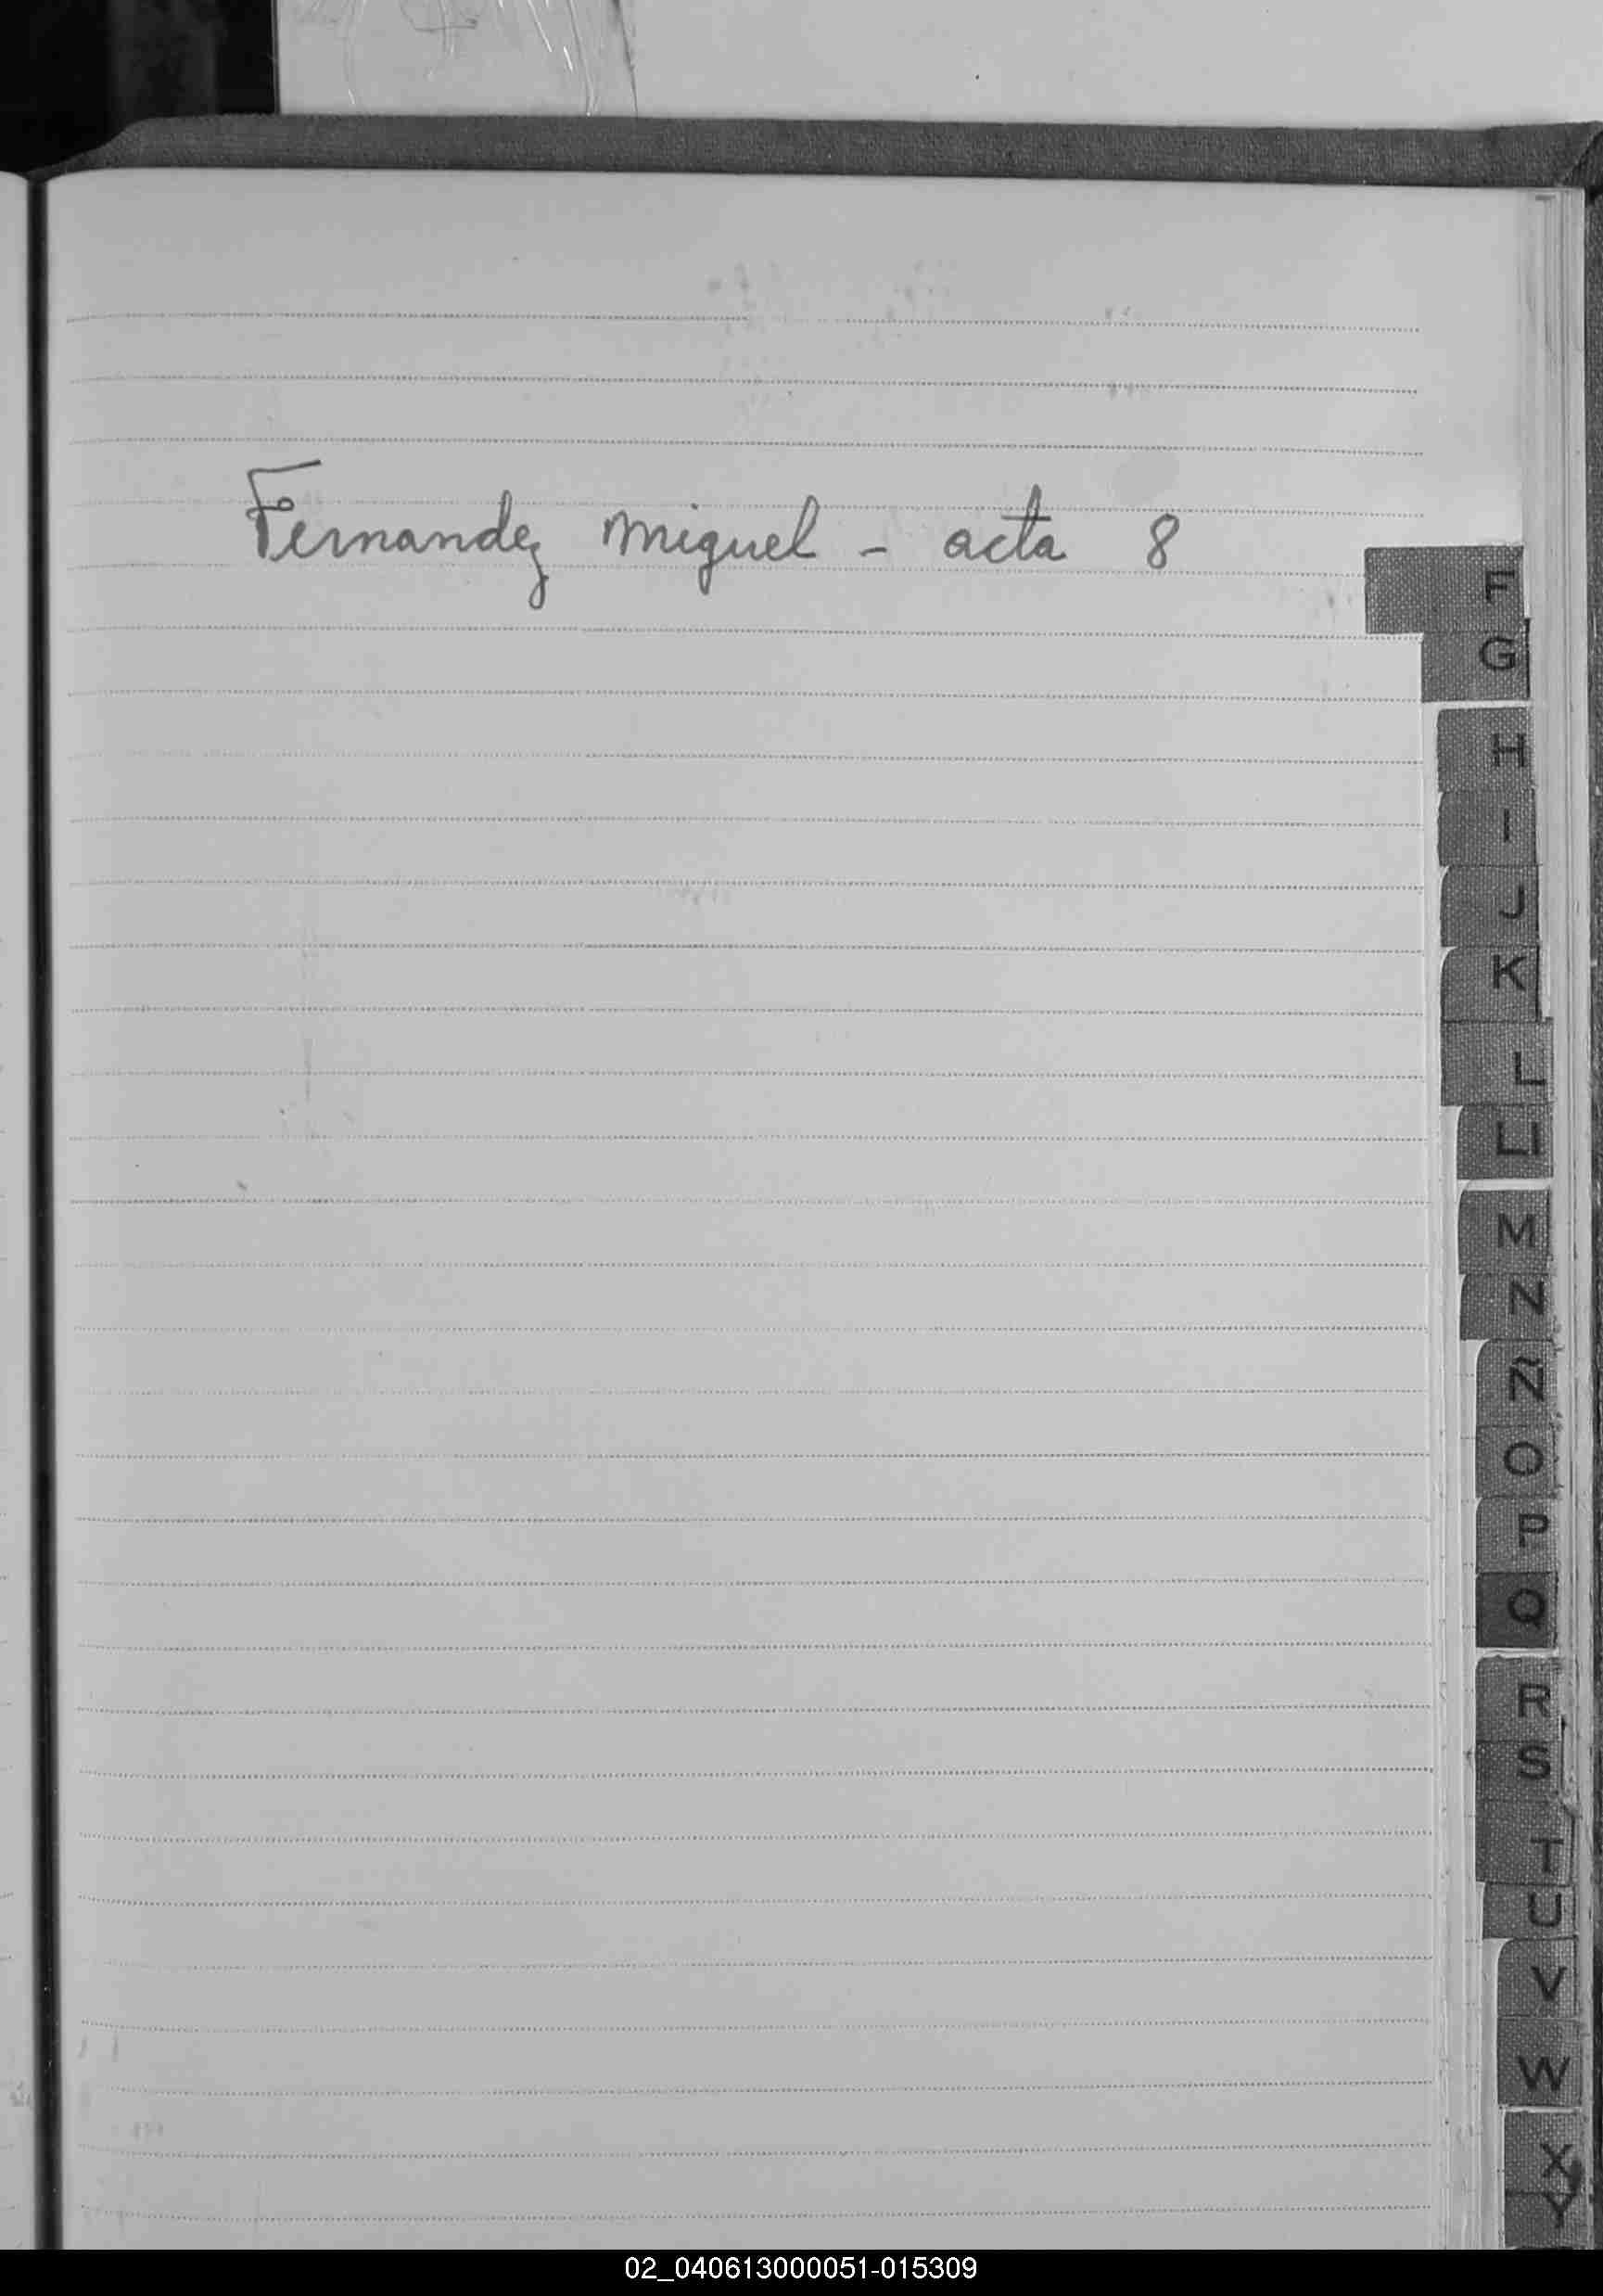 Fernandez Miguel - acta 8
F
G
H
I
J
K
L
LL
M
N
Ñ
O
P
Q
R
S
T
U
V
W
X
Y
02_040613000051-015309